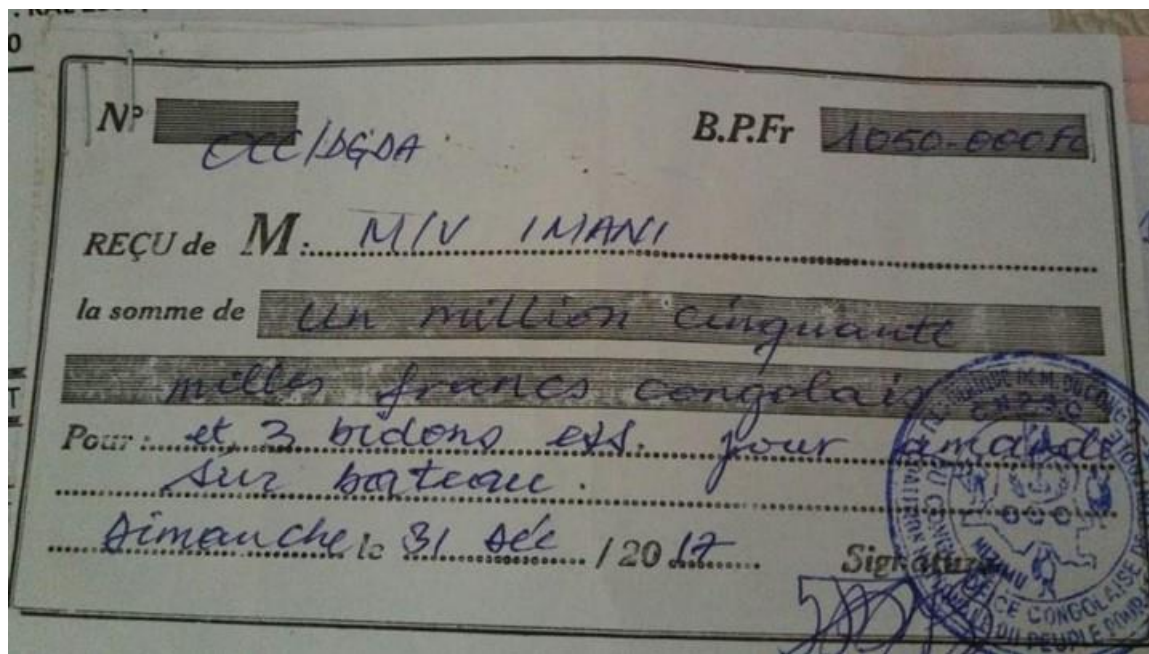 0
Nº OCC/DGDA B.P.Fr 1050-000Fc
REÇU de M: M/V IMANI
la somme de Un million cinquante
milles francs congolais
Pour: et 3 bidons ess. pour amande
sur bateau.
Dimanche le 31 Déc / 2017
Signature
CE CONGOLAISE DE
DU PEUPLE POUR